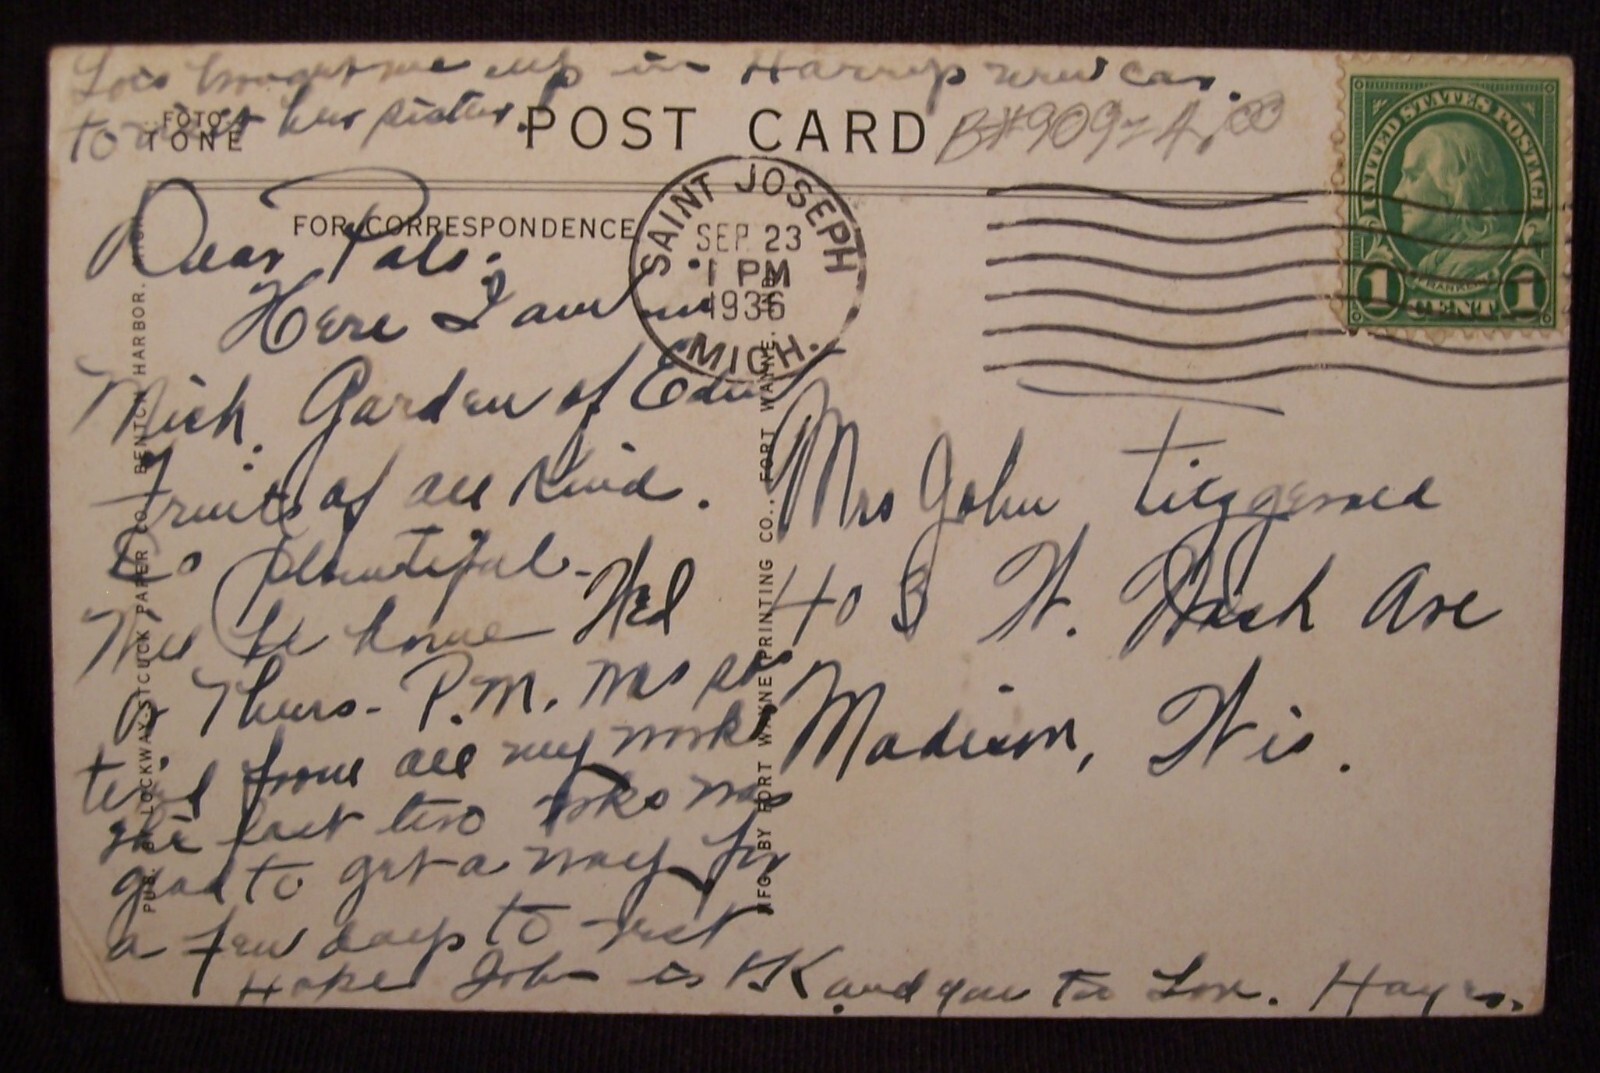 Lois brought me up in Harrys new car.
to meet her sister.
FOTO
TONE
POST CARD
B#909=4.00
UNITED STATES POSTAGE
FRANKLIN
1 CENT 1
FOR CORRESPONDENCE
SAINT JOSEPH
SEP 23
1 PM
1936
MICH.
Dear Pals.
Here I am in
Mich. Garden of Eden
Fruits of all Kind.
So plentiful.
Will be home Wed
or Thurs- P.M. Was so
tired from all my work
the last two wks was
glad to get a way for
a few days to rest
Hope John is OK and you to Love. Hayes.
Mrs John Fitzgerald
403 W. Wash Ave
Madison, Wis.
PUB. LOCKWAY-STOUCK PAPER CO. BENTON HARBOR,
MFG. BY FORT WAYNE PRINTING CO., FORT WAYNE,